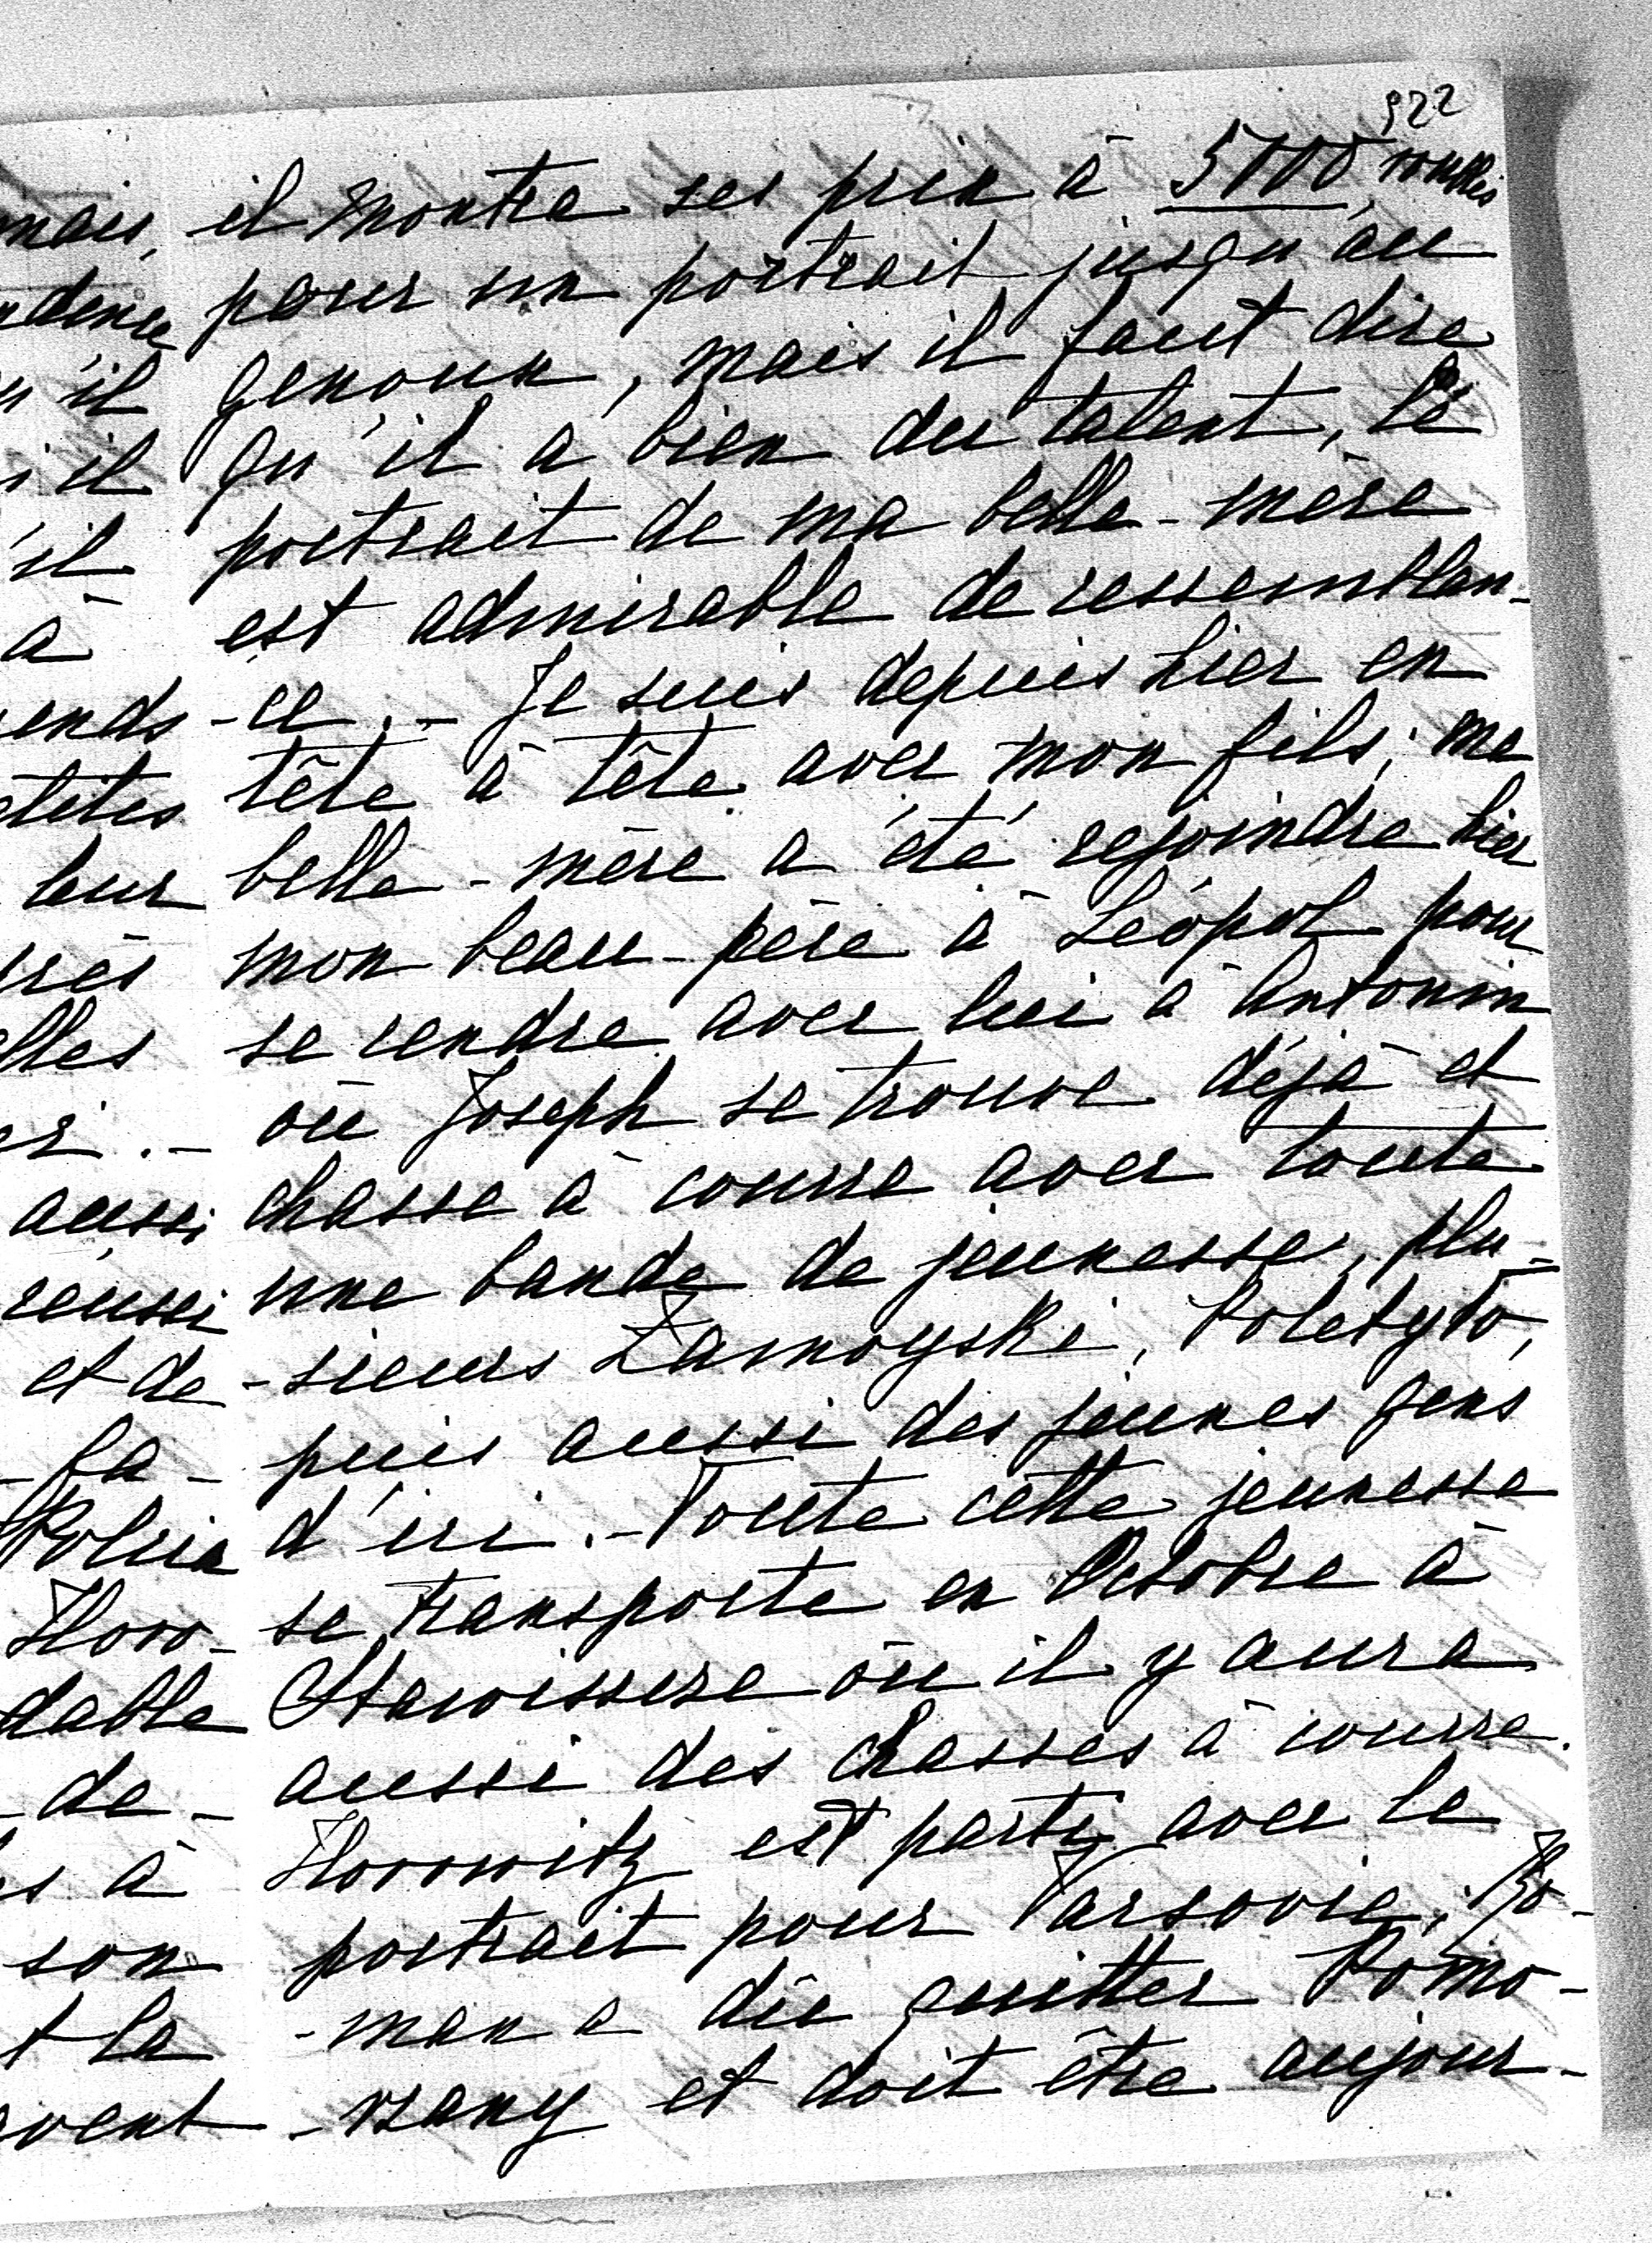 922
mais, il montre ses prix à 5000, roubles
pour un portrait jusqu'au
u'il genoux, mais il faut dire
il qu'il a bien du talent, le
'il portrait de ma belle-mère
à est admirable de ressemblan-
ends -ce. - Je suis depuis hier en
tites tête à tête avec mon fils; ma
leur belle-mère a été rejoindre hier
mon beau-père à Léopol pour
elles se rendre avec lui à Antonin
er. - où Joseph se trouve déjà et
aussi chasse à courre avec toute
reussi une bande de jeunesse, plu-
et de -sieurs Zamoyski, Poletyło,
-fa- puis aussi des jeunes gens
d'ici. - Toute cette jeunesse
Horo- se transporte en Octobre à
dable Slawissere où il y aura
-de- aussi des chasses à courre.
s à Horowitz est parti avec le
son portrait pour Varsovie; Ro-
t la -man a dû quitter Pomo-
vent -rzany et doit être aujour-